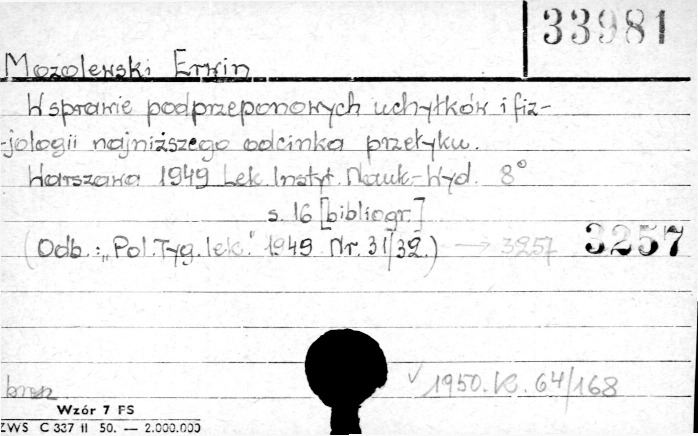 33981
Mozolewski Erwin
W sprawie podprzeponowych uchyłków i fiz-
-jologii najniższego odcinka przełyku.
Warszawa 1949 Lek. Instyt. Nauk.-Wyd. 8°
s. 16 [bibliogr.]
(Odb.: „Pol. Tyg. lek." 1949 Nr. 31/32.) → 3257 3257
√ 1950. K. 64/168
Wzór 7 FS
ZWS C 337 II 50. — 2.000.000